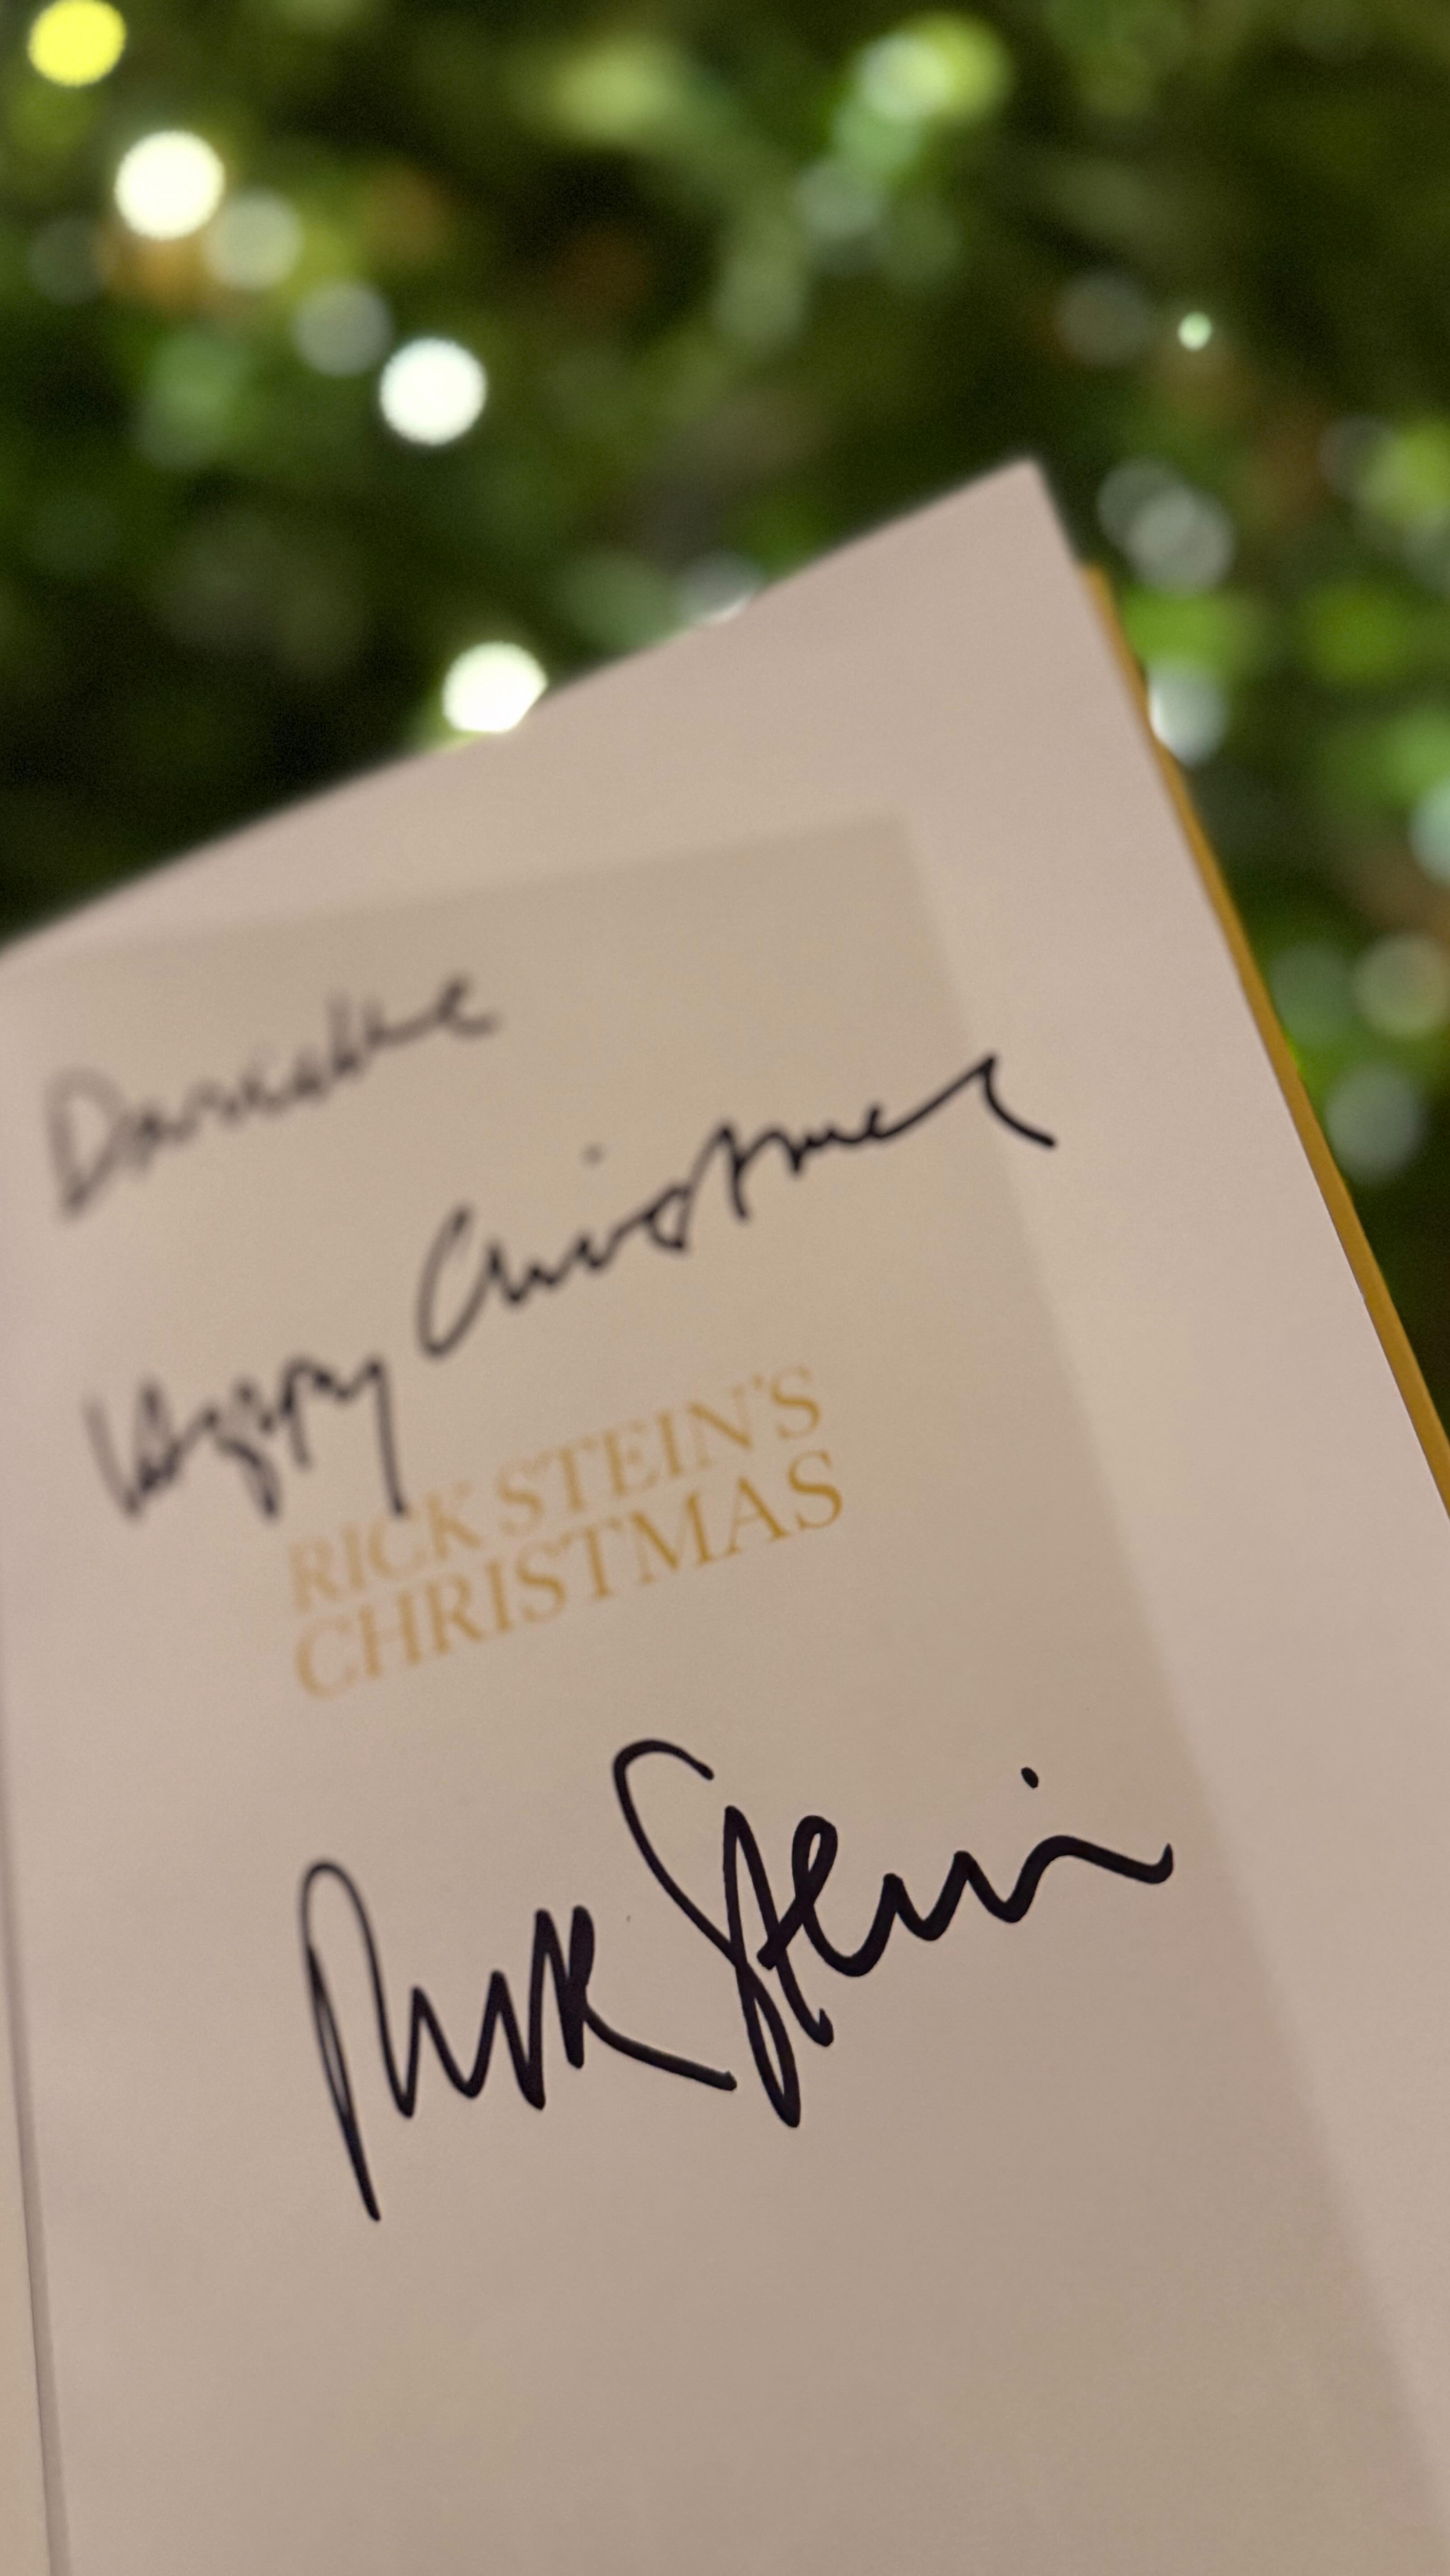 Happy Christmas
RICK STEIN'S
CHRISTMAS
Rick Stein